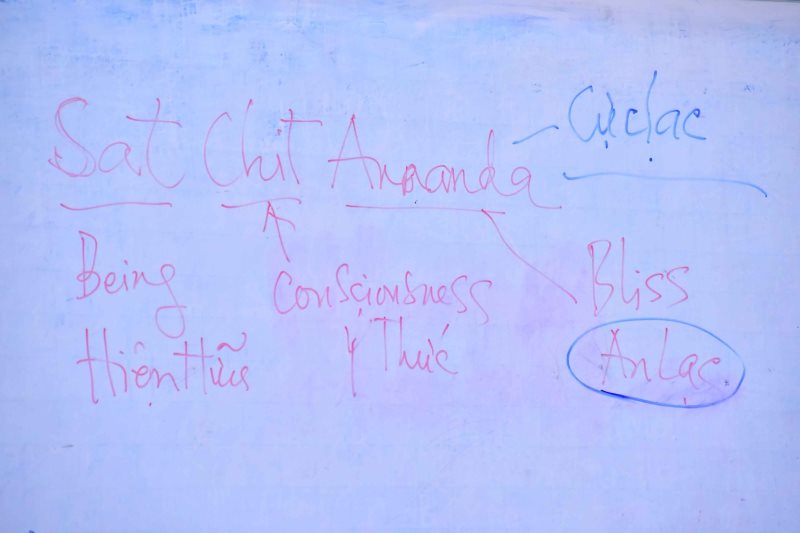 Sat Chit Ananda - Cực lạc
Being Consciousness Bliss
Hiện Hữu Ý Thức An Lạc